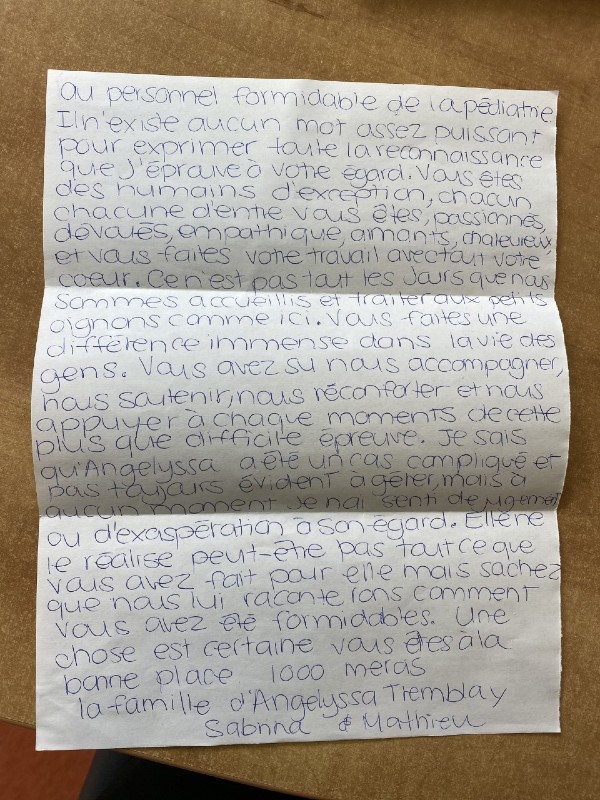 au personnel formidable de la pédiatrie
Il n'existe aucun mot assez puissant
pour exprimer toute la reconnaissance
que j'éprouve à votre égard. Vous êtes
des humains d'exception, chacun
chacune d'entre vous êtes, passionnés,
dévoués, empathique, aimants, chaleureux,
et vous faites votre travail avec tout votre
coeur. Ce n'est pas tout les Jours que nous
sommes accueillis et traiter aux petits
oignons comme ici. Vous faites une
différence immense dans la vie des
gens. Vous avez su nous accompagner,
nous soutenir, nous réconforter et nous
appuyer à chaque moments de cette
plus que difficile épreuve. Je sais
qu'Angelyssa a été un cas compliqué et
pas toujours évident à gérer, mais à
aucun moment Je n'ai senti de jugement
ou d'exaspération à son égard. Elle ne
le réalise peut-être pas tout ce que
vous avez fait pour elle mais sachez
que nous lui raconterons comment
vous avez été formidables. Une
chose est certaine vous êtes à la
bonne place 1000 mercis
la famille d'Angelyssa Tremblay
Sabrina & Mathieu